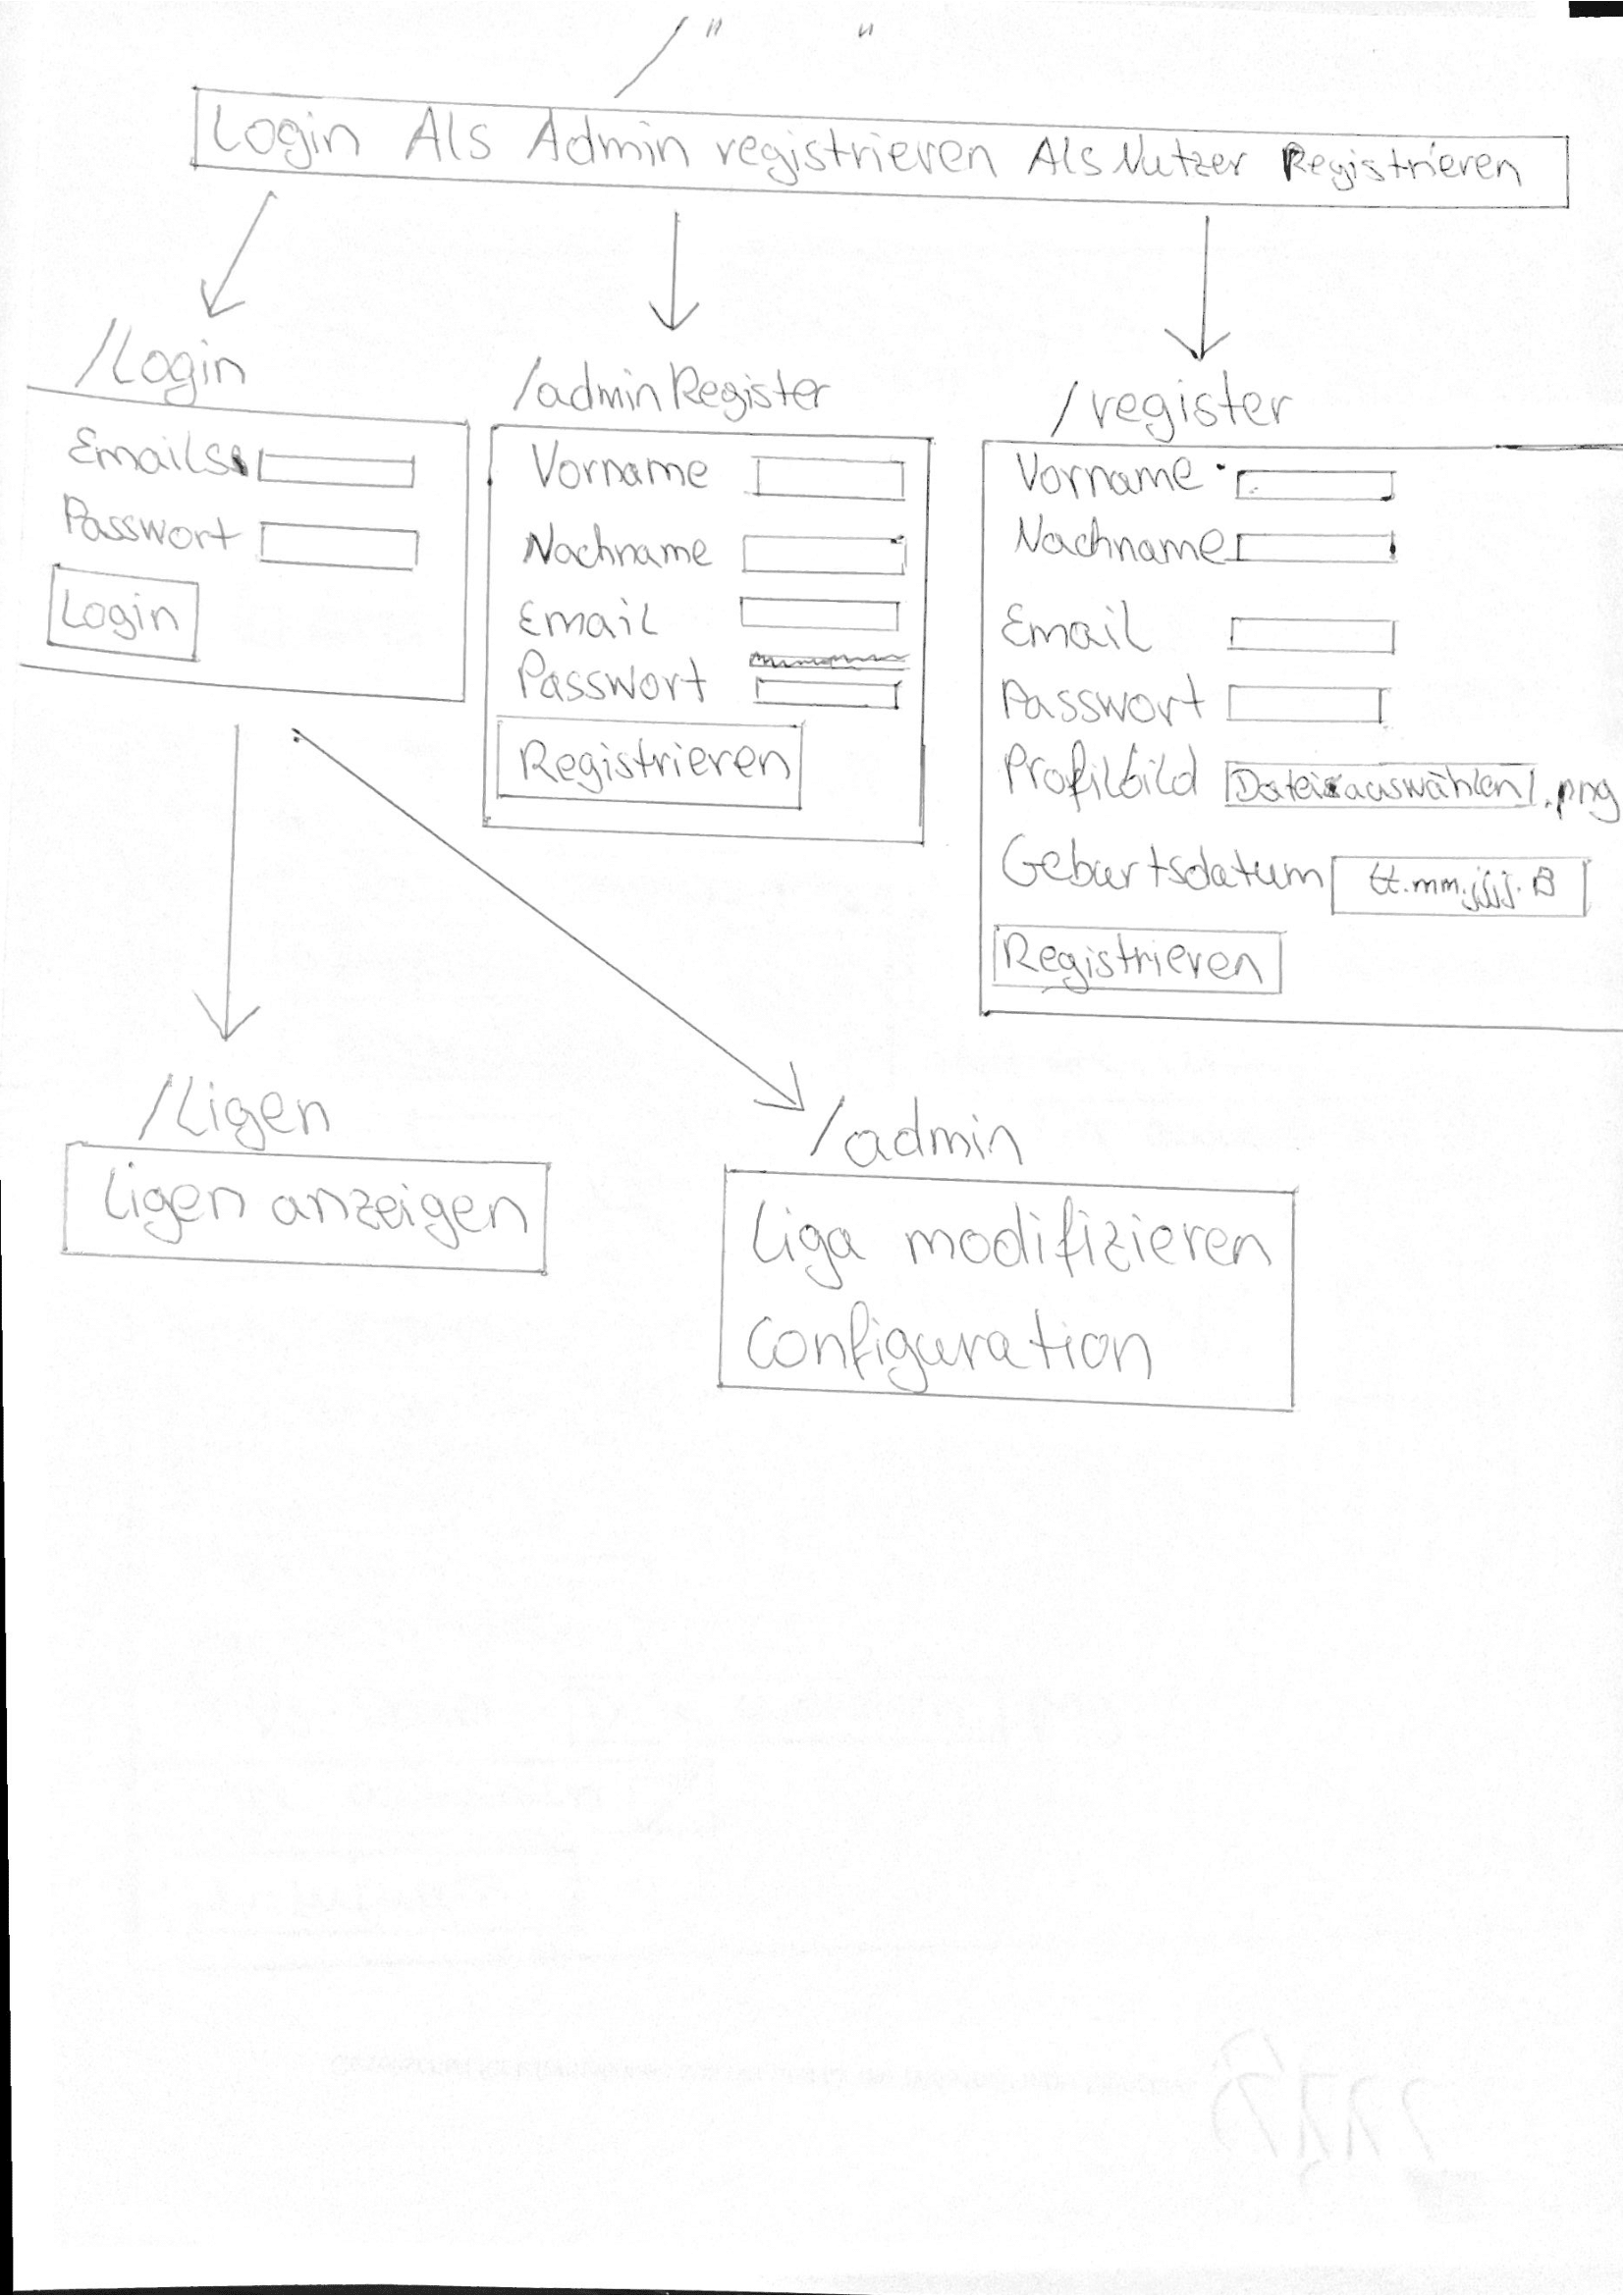 / "        "
Login Als Admin registrieren Als Nutzer Registrieren
/Login
Emails
Passwort
Login
/adminRegister
Vorname
Nachname
Email
Passwort
Registrieren
/register
Vorname
Nachname
Email
Passwort
Profilbild Datei auswählen .png
Geburtsdatum tt.mm.jjjj.
Registrieren
/Ligen
Ligen anzeigen
/admin
Liga modifizieren
Configuration